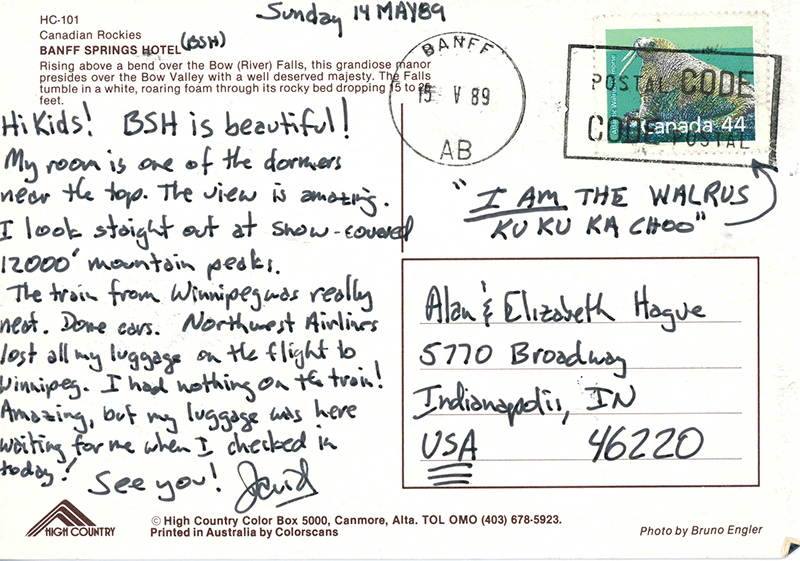 Sunday 14 MAY 89
HC-101
Canadian Rockies
BANFF SPRINGS HOTEL (BSH)
Rising above a bend over the Bow (River) Falls, this grandiose manor
presides over the Bow Valley with a well deserved majesty. The Falls
tumble in a white, roaring foam through its rocky bed dropping 15 to
feet.
Hi Kids! BSH is beautiful!
My room is one of the dormers
near the top. The view is amazing.
I look staight out at snow-covered
12000' mountain peaks.
The train from Winnipeg was really
neat. Dome cars. Northwest Airlines
lost all my luggage on the flight to
Winnipeg. I had nothing on the train!
Amazing, but my luggage was here
waiting for me when I checked in
today! See you! David
BANFF
15 V 89
AB
POSTAL CODE
CODE POSTAL
Canada 44
"I AM THE WALRUS
KU KU KA CHOO"
Alan & Elizabeth Hague
5770 Broadway
Indianapolis, IN
USA 46220
HIGH COUNTRY
© High Country Color Box 5000, Canmore, Alta. TOL OMO (403) 678-5923.
Printed in Australia by Colorscans
Photo by Bruno Engler